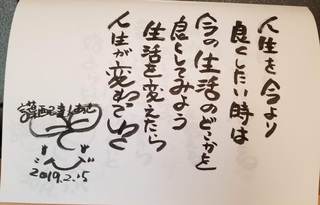 人生を今より
良くしたい時は
今の生活のどこかを
良くしてみよう
生活を変えたら
人生が変わっていく
2019.2.15